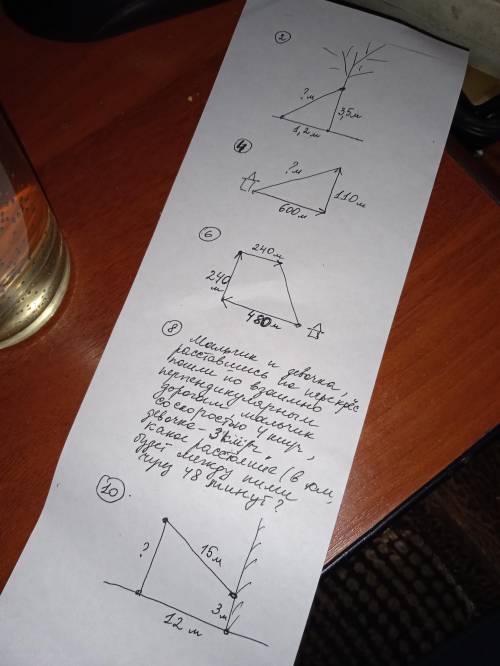 2
? м
3,5м
1,2м
4
? м
110м
600м
6
240м
240
м
480м
8
Мальчик и девочка,
расставшись на
пошли по взаимно
перпендикулярным
дорогам, мальчик
со скоростью 4
девочка - 3
Какое расстояние (в км,
будет между ними
через 48 минут?
10
?
15м
3м
12 м